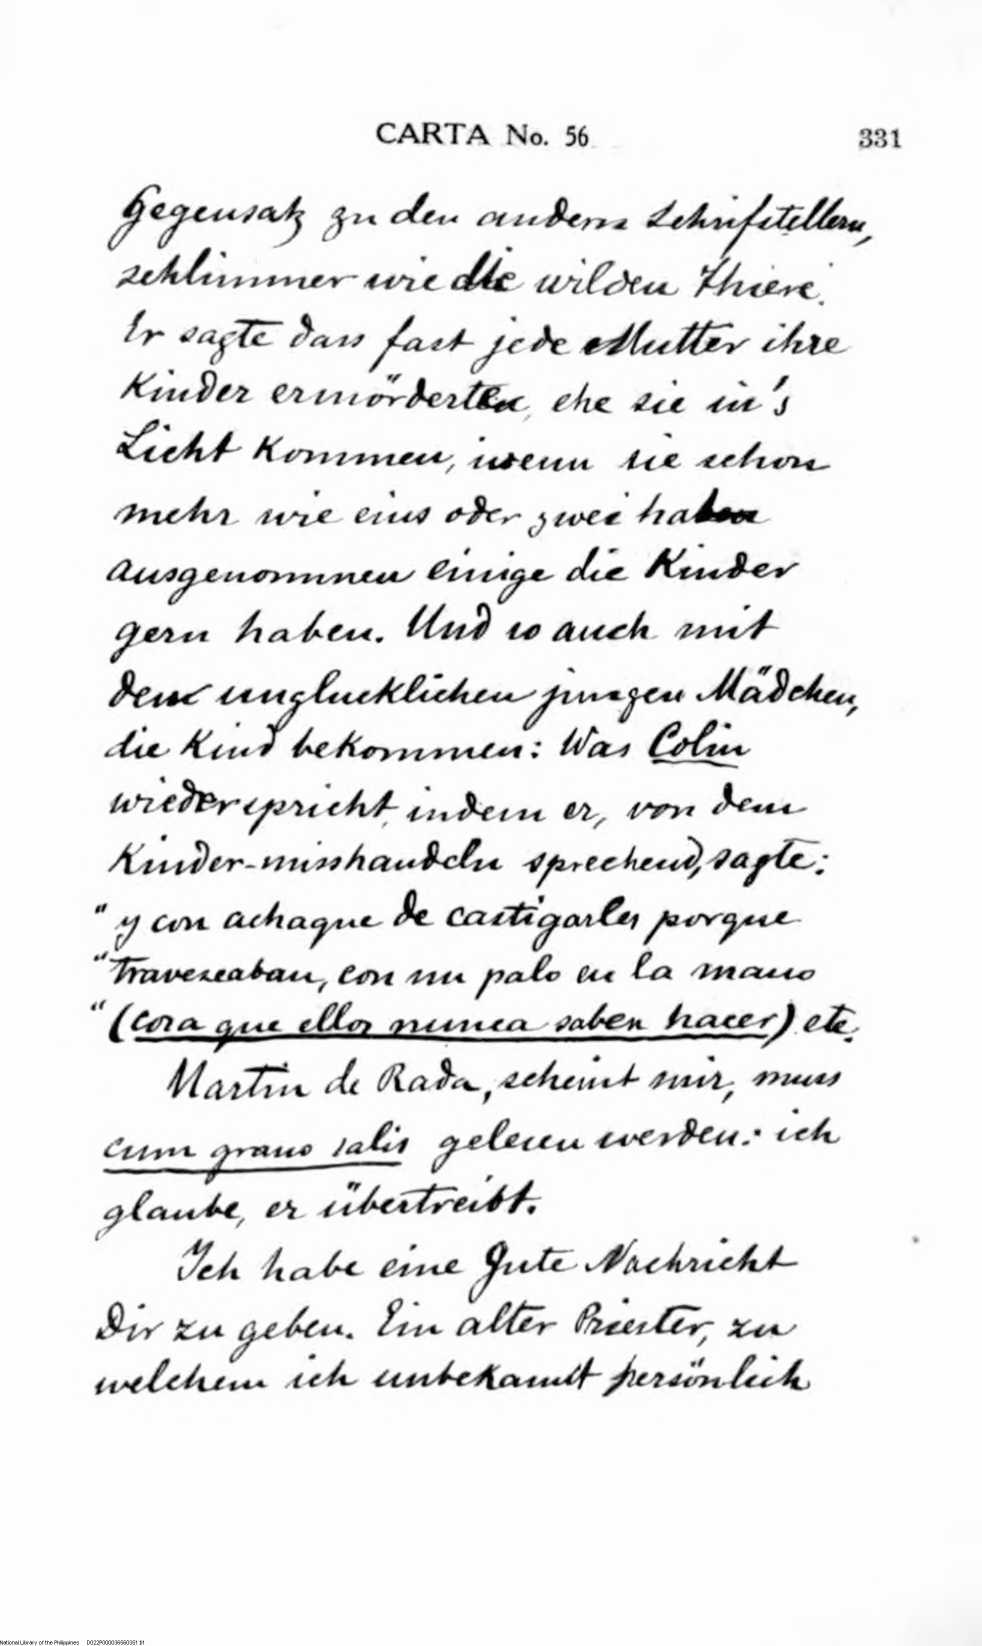 CARTA No. 56 331
Gegensatz zu den andern Schrifstellern,
schlimmer wie die wilden Thiere.
Er sagte dass fast jede Mutter ihre
Kinder ermörderten, ehe sie in's
Licht kommen, wenn sie schon
mehr wie eins oder zwei haben
ausgenommen einige die Kinder
gern haben. Und so auch mit
den unglucklichen jungen Mädchen,
die Kind bekommen: Was Colin
wiederspricht, indem er, von dem
Kinder-misshandeln sprechend, sagte:
"y con achaque de castigarles porque
"traveseaban, con un palo en la mano
"(cosa que ellos nunca saben hacer) etc.
Martin de Rada, scheint mir, muss
cum grano salis gelesen werden: ich
glaube, er übertreibt.
Ich habe eine Gute Nachricht
Dir zu geben. Ein alter Priester, zu
welchem ich unbekannt persönlich
National Library of the Philippines